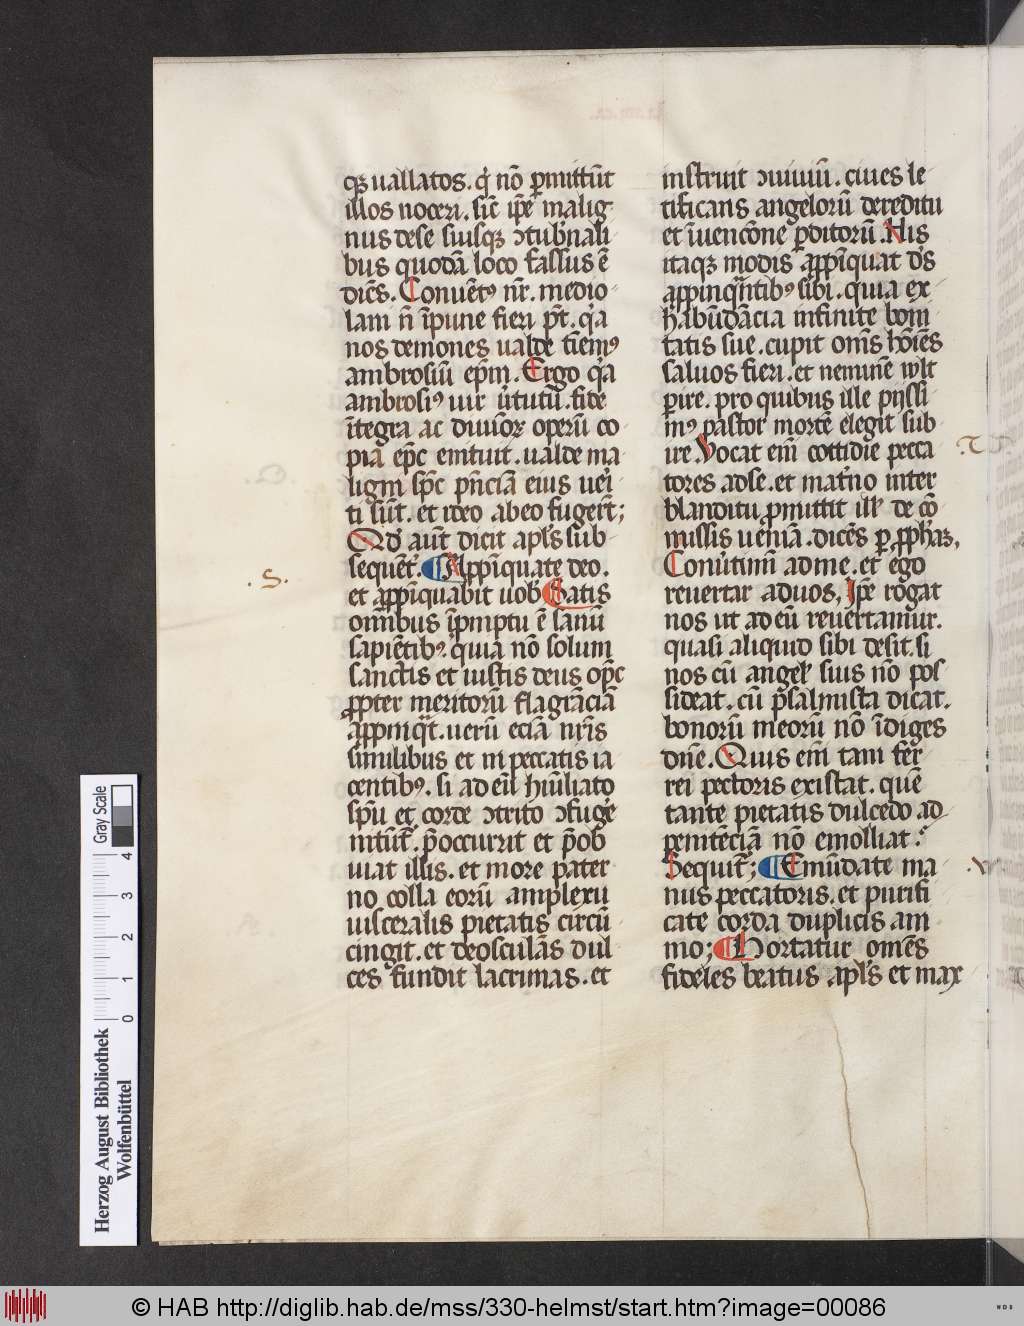 qꝫ uallatos. q̇ nō ꝑmittūt
illos noceri. sic̄ ip̄e malig
nus de se suisqꝫ ↄtub̓nali
bus quodā loco fassus ē
dicēs. Conuēt⁹ nr̄. medio
lam n̄ īpune fieri pt̄. q̓a
nos demones ualde tīem⁹
ambrosiū ep̄m. Ergo q̓a
ambrosi⁹ uir u̓tutū. fide
ītegra ac diuior̄ꝫ operū co
pia ep̄c emituit. ualde ma
ligni sp̄c p̄nciā eius ueri
ti sūt. et ideo ab eo fuger̄t;
Qd̓ aut̄ dicit apl̓s sub
sequēt̓. Appīquate deo.
et appīquabit uob̓ Satis
omībus īpmptu ē sanū
sapiētib⁹. quia nō solum
sanctis et iustis deus op̄c
ꝓpter meritorū flagrāciā
appinq̄t. uerū eciā nr̄is
similibus et in peccatis ia
centib⁹. si ad eū humiliato
sp̄u et corde ↄtrito ↄfuge
rintūt̓. p̄occurrit et p̄ob
uiat illis. et more pater
no colla eorū amplexu
uisceralis pietatis circū
cingit. et deosculās dul
ces fundit lacrimas. et
instruit ↄuiuiū. ciues le
tificans angelorū de reditu
et īuencōne ꝑditorū. His
itaqꝫ modis appīquat d̄s
appinquātib⁹ sibi. quia ex
habūdācia infinite boni
tatis sue. cupit om̄s hōies
saluos fieri. et neminē wlt
ꝑire. pro quibus ille pijssi
m⁹ pastor mortē elegit sub
ire. Vocat eni̅ cottidie pecca
tores ad se. et mat̓no inter
blanditu ꝓmittit ill̓ de cō
missis ueniā. dicēs ꝑ ꝓph̓aꝫ,
Conu̓timini ad me. et ego
reuertar ad uos, Ip̄e rogat
nos ut ad eū reuertamur.
quasi aliquid sibi desit. si
nos cū angel̓ suis nō pos
sideat. cū p̄salmista dicat.
bonorū meorū nō īdiges
dn̄e. Quis eni̅ tam fer
rei pectoris existat. quē
tante pietatis dulcedo ad
penitēciā nō emolliat.
Sequit̓; Emūdate ma
nus peccatoris. et purifi
cate corda duplicis ani
mo; Hortatur omēs
fideles beatus apl̓s et max
.S.
Herzog August Bibliothek
Wolfenbüttel
0 1 2 3 4
Gray Scale
© HAB http://diglib.hab.de/mss/330-helmst/start.htm?image=00086